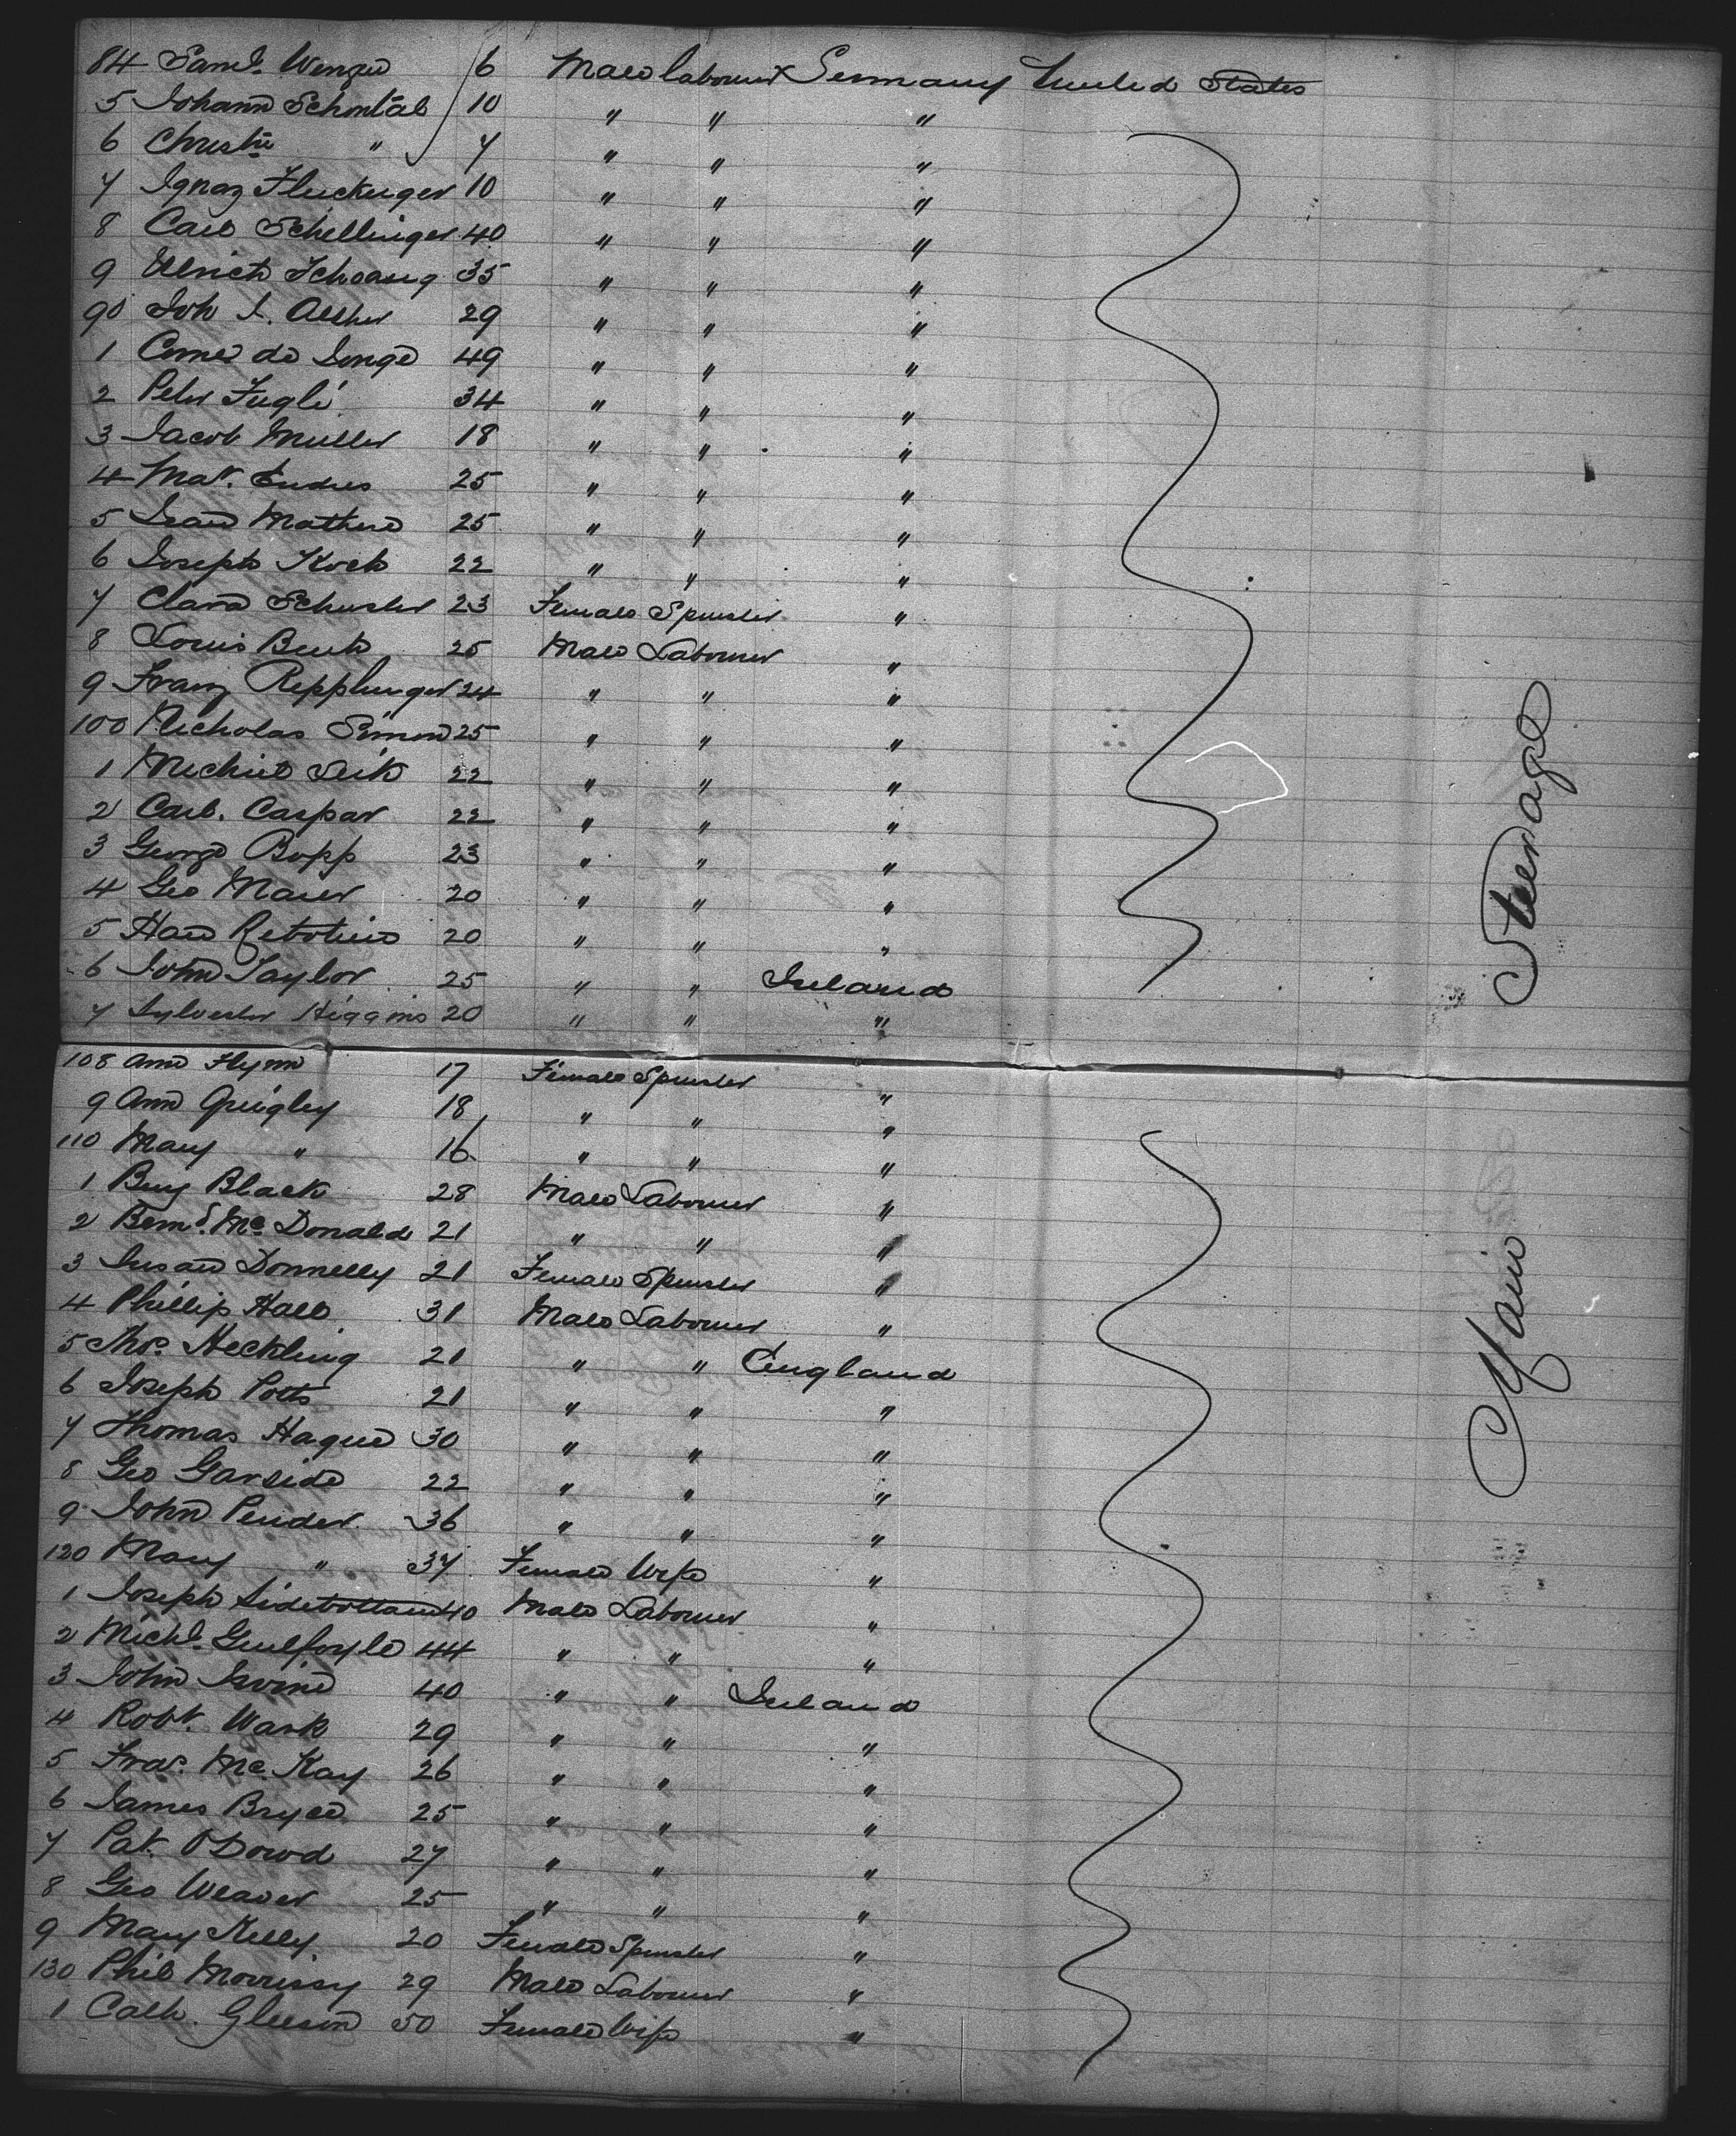 84 Saml. Wenger 6 Male labourer Germany United States
5 Johann Schontal 10 " " "
6 Christn " 7 " " "
7 Ignaz Fluckuger 10 " " "
8 Carl Schellinger 40 " " "
9 Ulrich Schoaug 35 " " "
90 Joh J. 29 " " "
1 de Jonge 49 " " "
2 Peter Fugli 34 " " "
3 Jacob Muller 18 " " "
4 Mat. Endres 25 " " "
5 Mathew 25 " " "
6 Joseph Koch 22 " " "
7 Clara Schuster 23 Female Spinster "
8 Louis 25 Male Labourer "
9 Franz Repplinger 24 " " "
100 Nicholas Simon 25 " " "
1 Michiel Leik 22 " " "
2 Carl. Caspar 22 " " "
3 George Bopp 23 " " "
4 Geo Maier 20 " " "
5 Han 20 " " "
6 John Taylor 25 " " Ireland
7 Sylvester Higgins 20 " " "
108 Ann Flynn 17 Female Spinster "
9 Ann Quigley 18 " " "
110 Mary " 16 " " "
1 Benj Black 28 Male Labourer "
2 Bernd. Mc Donald 21 " " "
3 Susan Donnelly 21 Female Spinster "
4 Phillip Hall 31 Male Labourer "
5 Thos. Heckling 21 " " England
6 Joseph Potts 21 " " "
7 Thomas Hague 30 " " "
8 Geo Garside 22 " " "
9 John Pender 36 " " "
120 Mary " 37 Female Wife "
1 Joseph Sidebottam 40 Male Labourer "
2 Michl. Guilfoyle 44 " " "
3 John Irvine 40 " " Ireland
4 Robt. Wark 29 " " "
5 Fras. Mc. Kay 26 " " "
6 James Bryce 25 " " "
7 Pat. O'Dowd 27 " " "
8 Geo Weaver 25 " " "
9 Mary Kelly 20 Female Spinster "
130 Phil Morrissy 29 Male Labourer "
1 Cath. Gleeson 50 Female Wife "
Steerage
Main